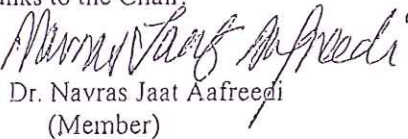 to the Chair.
Navras Jaat Aafreedi
Dr. Navras Jaat Aafreedi
(Member)